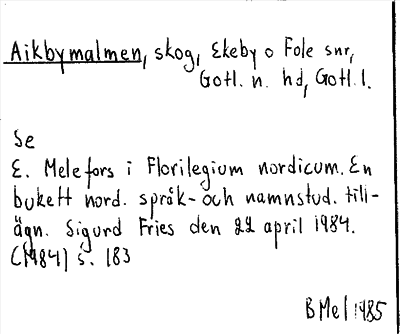 Aikbymalmen, skog, Ekeby o Fole snr,
Gotl. n. hd, Gotl. l.
Se
E. Melefors i Florilegium nordicum. En
bukett nord. språk- och namnstud. till-
ägn. Sigurd Fries den 22 april 1984.
(M84) s. 183
BMel 1985